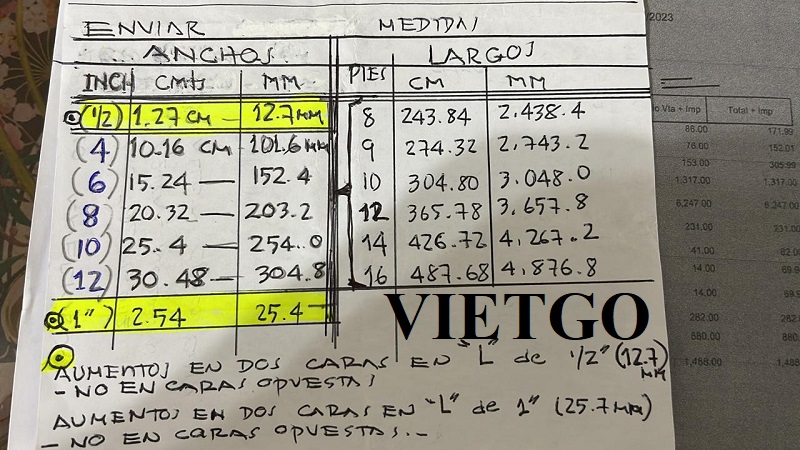 ENVIAR MEDIDAS
ANCHOS LARGOS
INCH CMts MM PIES CM MM
(1/2) 1.27 CM — 12.7 MM 8 243.84 2.438.4
(4) 10.16 CM 101.6 MM 9 274.32 2.743.2
(6) 15.24 — 152.4 10 304.80 3.048.0
(8) 20.32 — 203.2 12 365.78 3.657.8
(10) 25.4 — 254.0 14 426.72 4.267.2
(12) 30.48 — 304.8 16 487.68 4.876.8
(1") 2.54 25.4
VIETGO
AUMENTOS EN DOS CARAS EN "L" de 1/2" (12.7) MM
- NO EN CARAS OPUESTAS
AUMENTOS EN DOS CARAS EN "L" de 1" (25.7 MM)
- NO EN CARAS OPUESTAS.-
2023
o Vta + Imp Total + Imp
86.00 171.99
76.00 152.01
153.00 305.99
1,317.00 1,317.00
6,247.00 6,247.00
231.00 231.00
41.00 82.0
14.00 69.9
14.00 59.
282.00 282.0
880.00 880.0
1,488.00 1,488.0